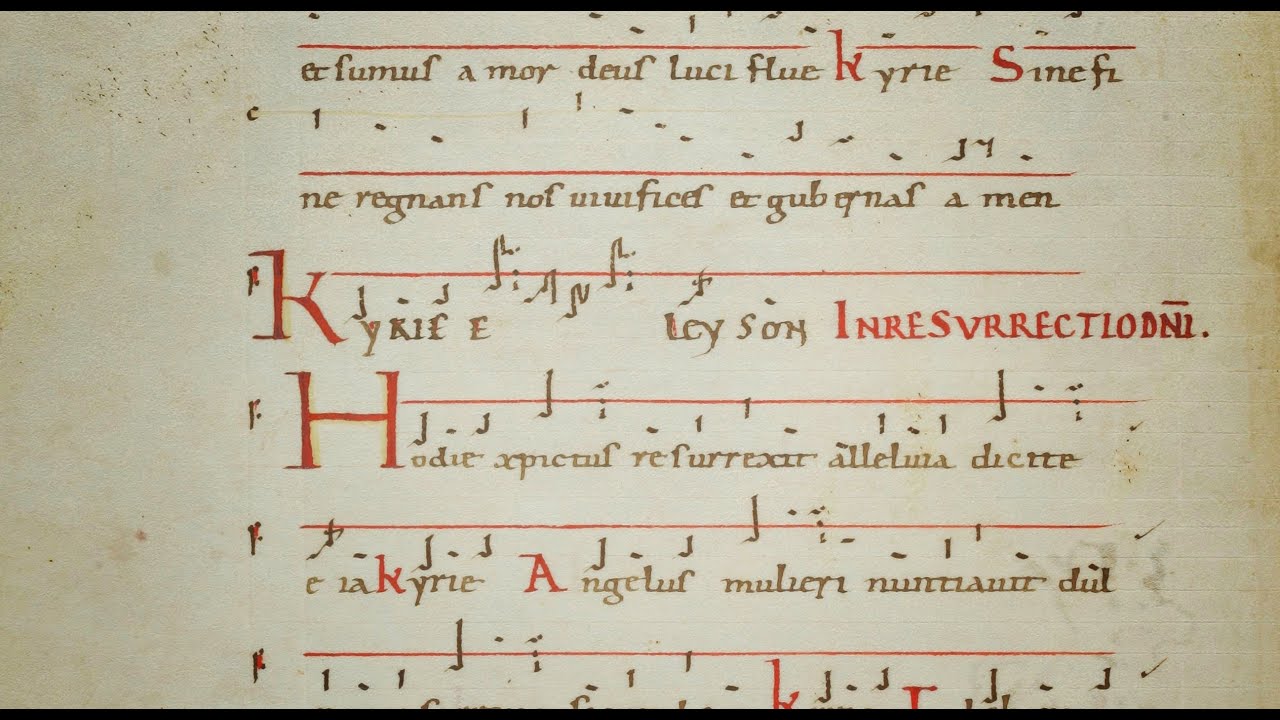 et sumus amor deus luci flue kyrie Sine fi
c
ne regnans nos uiuifices et gubernas amen
F KYRIE E LEYSON INRESURRECTIO DN̄I.
F Hodie xpictus resurrexit alleluia dicite
F eia kyrie Angelus mulieri nuntiauit dul
F